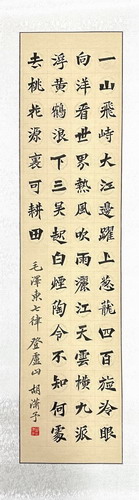 一山飛峙大江邊躍上葱蘢四百旋冷眼
向洋看世界熱風吹雨灑江天雲橫九派
浮黃鶴浪下三吳起白煙陶令不知何處
去桃花源裏可耕田
毛澤東七律 登廬山 胡瀟予